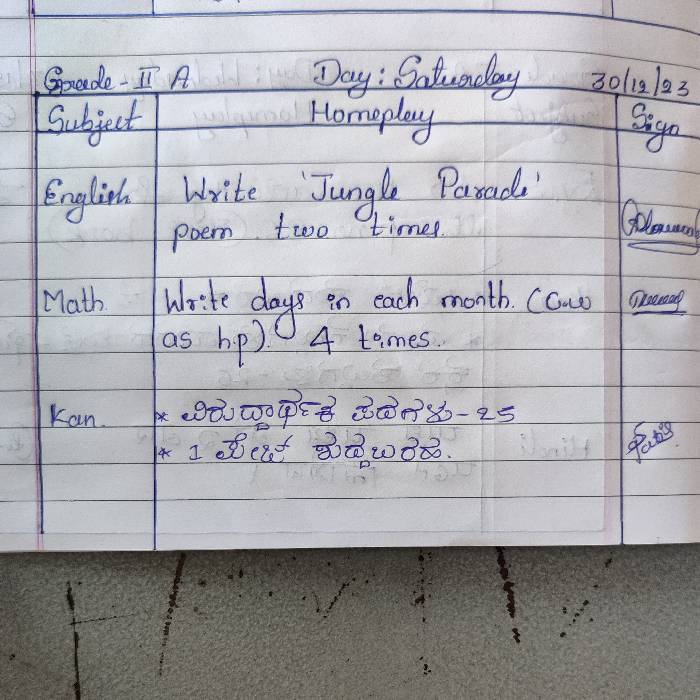 Grade - II A Day: Saturday 30/12/23
Subject Homeplay Sign
English Write 'Jungle Parade'
poem two times.
Math Write days in each month. (C.w
as h.p). 4 times.
Kan. * ವಿರುದ್ಧಾರ್ಥಕ ಪದಗಳು - 25
* 1 ಪೇಜ್ ಶುದ್ಧಬರಹ.